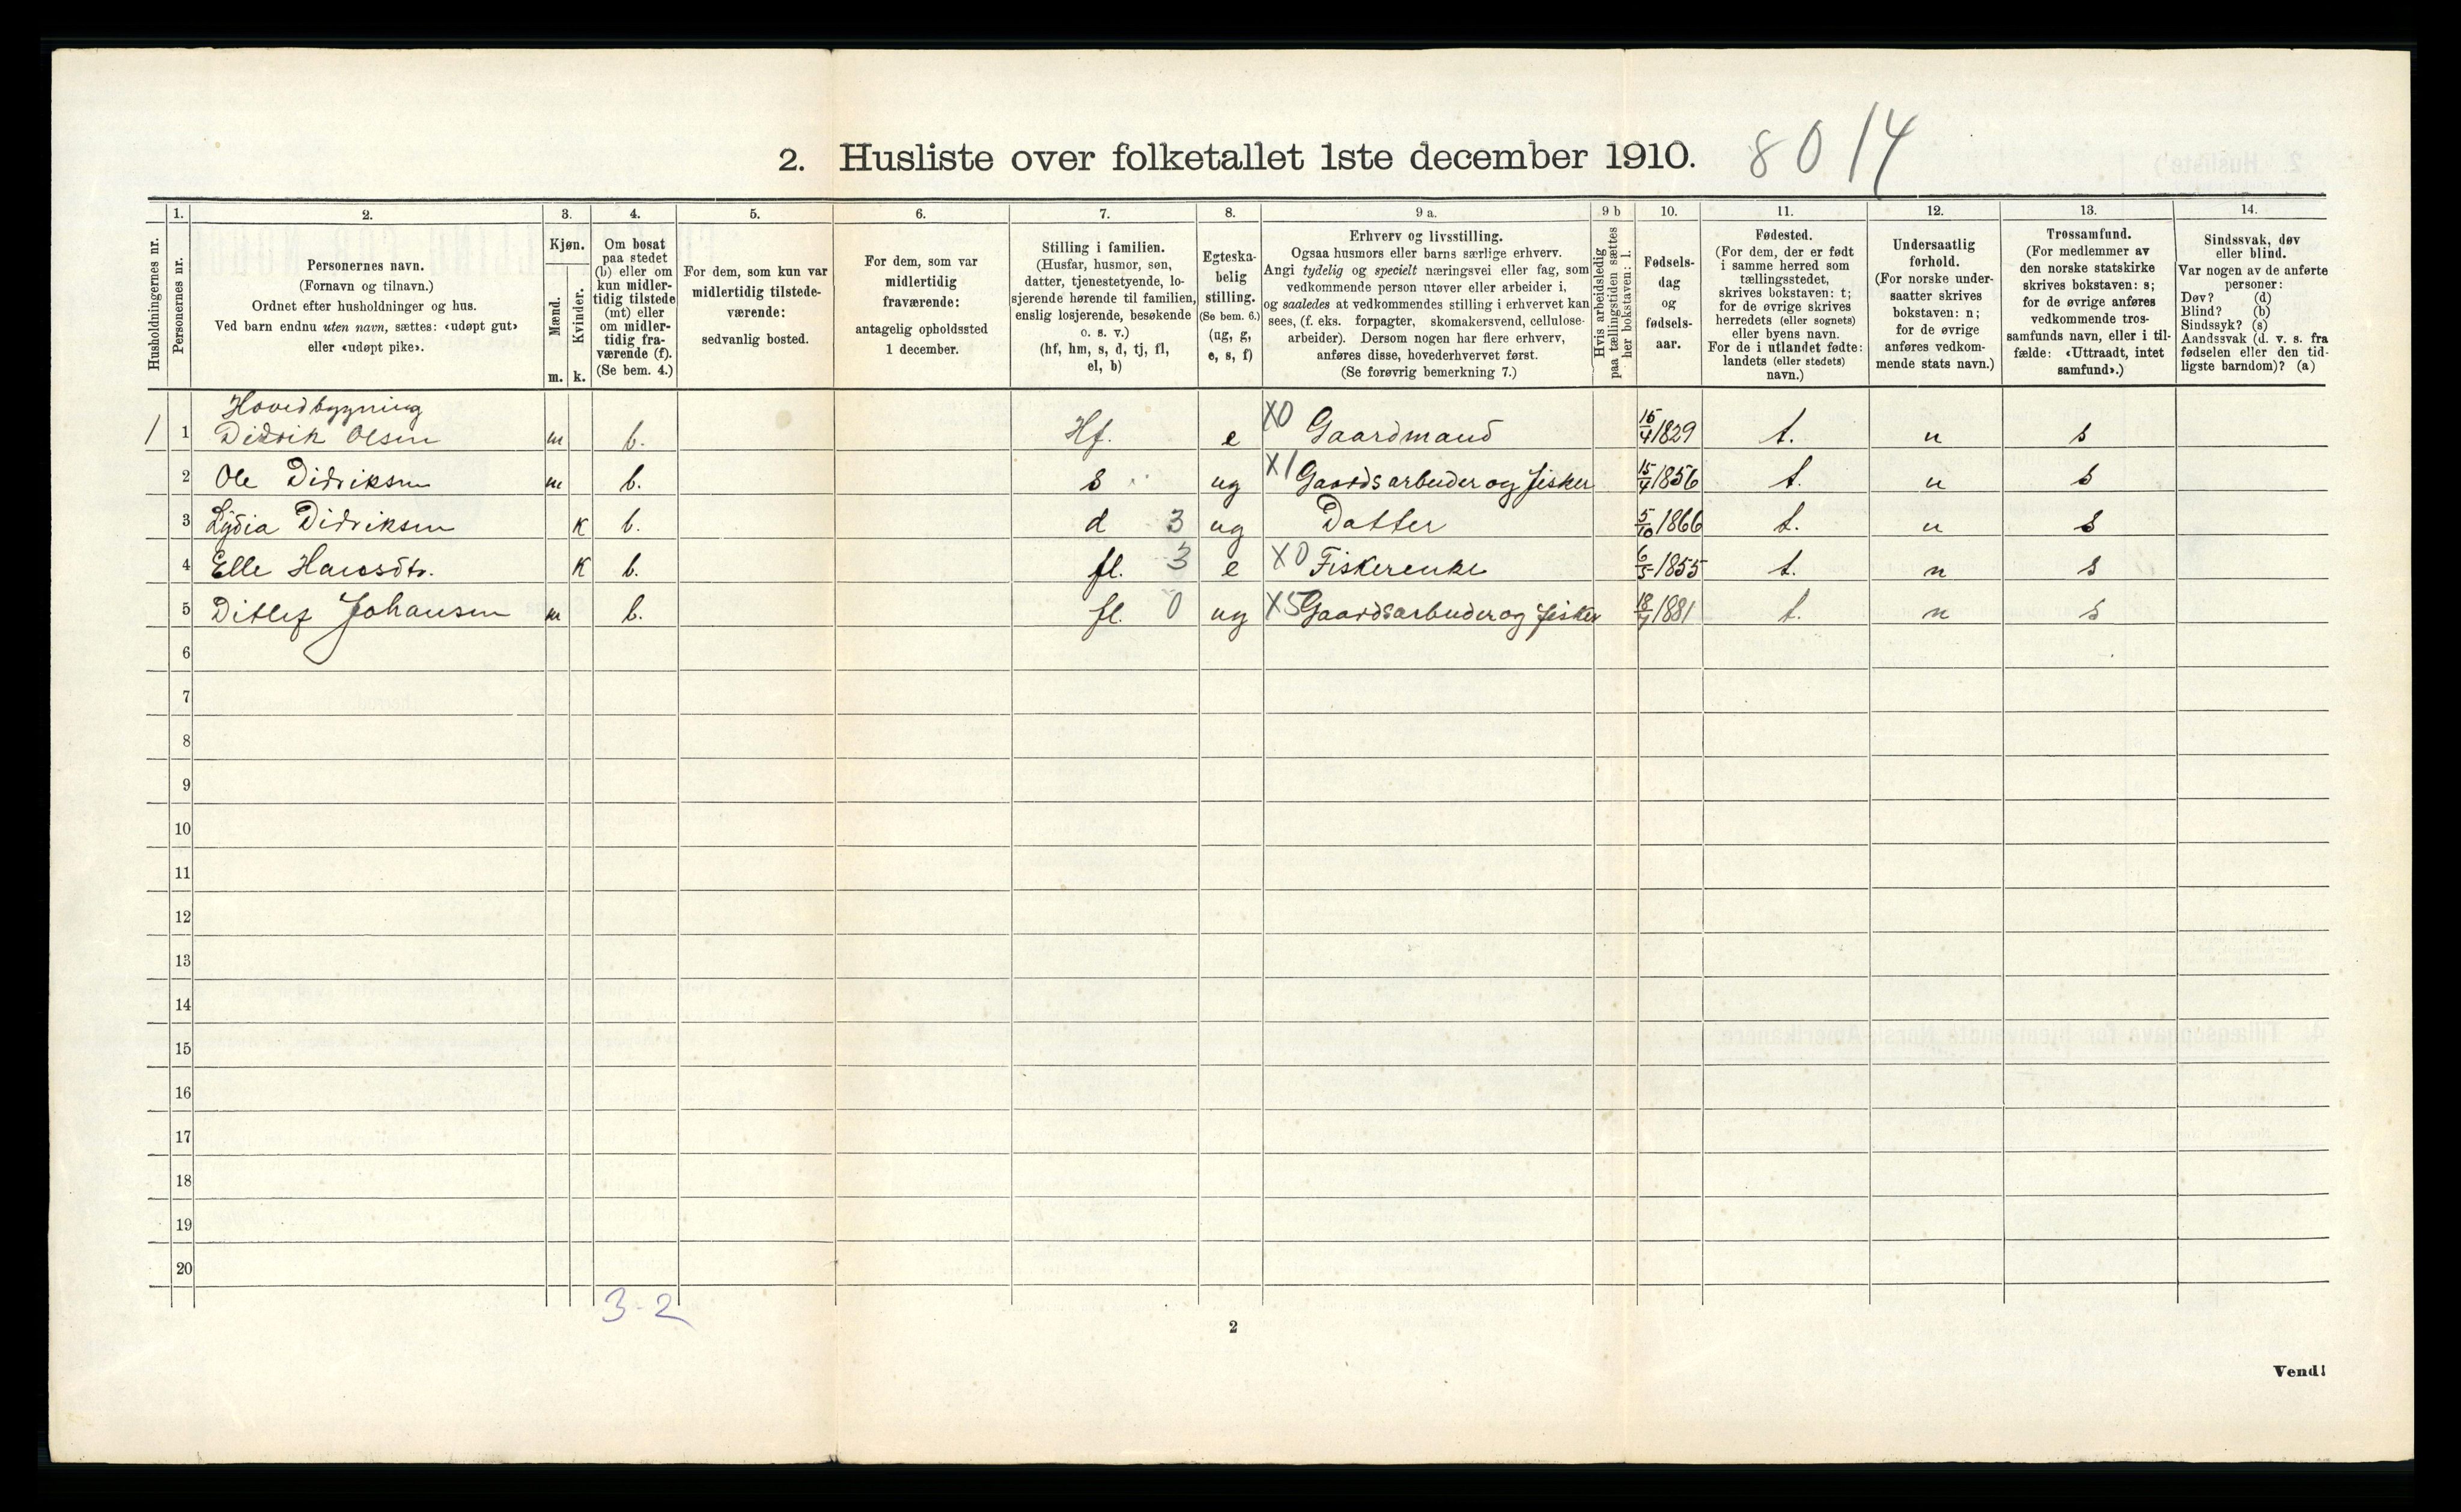 2. Husliste over folketallet 1ste december 1910. 8014
Husholdningernes nr.
1.
Personernes nr.
2.
Personernes navn.
(Fornavn og tilnavn.)
Ordnet efter husholdninger og hus.
Ved barn endnu uten navn, sættes: «udøpt gut»
eller «udøpt pike».
3.
Kjøn.
Mænd.
m.
Kvinder.
k.
4.
Om bosat
paa stedet
(b) eller om
kun midler-
tidig tilstede
(mt) eller
om midler-
tidig fra-
værende (f).
(Se bem. 4.)
5.
For dem, som kun var
midlertidig tilstede-
værende:
sedvanlig bosted.
6.
For dem, som var
midlertidig
fraværende:
antagelig opholdssted
1 december.
7.
Stilling i familien.
(Husfar, husmor, søn,
datter, tjenestetyende, lo-
sjerende hørende til familien,
enslig losjerende, besøkende
o. s. v.)
(hf, hm, s, d, tj, fl,
el, b)
8.
Egteska-
belig
stilling.
(Se bem. 6.)
(ug, g,
e, s, f)
9 a.
Erhverv og livsstilling.
Ogsaa husmors eller barns særlige erhverv.
Angi tydelig og specielt næringsvei eller fag, som
vedkommende person utøver eller arbeider i,
og saaledes at vedkommendes stilling i erhvervet kan
sees, (f. eks. forpagter, skomakersvend, cellulose-
arbeider). Dersom nogen har flere erhverv,
anføres disse, hovederhvervet først.
(Se forøvrig bemerkning 7.)
9 b
Hvis arbeidsledig
paa tællingstiden sættes
her bokstaven: l.
10.
Fødsels-
dag
og
fødsels-
aar.
11.
Fødested.
(For dem, der er født
i samme herred som
tællingsstedet,
skrives bokstaven: t;
for de øvrige skrives
herredets (eller sognets)
eller byens navn.
For de i utlandet fødte:
landets (eller stedets)
navn.)
12.
Undersaatlig
forhold.
(For norske under-
saatter skrives
bokstaven: n;
for de øvrige
anføres vedkom-
mende stats navn.)
13.
Trossamfund.
(For medlemmer av
den norske statskirke
skrives bokstaven: s;
for de øvrige anføres
vedkommende tros-
samfunds navn, eller i til-
fælde: «Uttraadt, intet
samfund».)
14.
Sindssvak, døv
eller blind.
Var nogen av de anførte
personer:
Døv? (d)
Blind? (b)
Sindssyk? (s)
Aandssvak (d. v. s. fra
fødselen eller den tid-
ligste barndom)? (a)
Hovedbygning
1 1 Didrik Olsen m b. Hf. e X0 Gaardmand 15/4 1829 t. n s
2 Ole Didriksen m b. s ug X1 Gaardsarbeider og fisker 15/4 1856 t. n s
3 Lydia Didriksen K b. d 3 ug Datter 5/10 1866 t. n s
4 Elle Hansdtr. K b. fl. 3 e X0 Fiskerenke 6/5 1855 t. n s
5 Ditlef Johansen m b. fl. 0 ug X5 Gaardsarbeider og fisker 18/7 1881 t. n s
6
7
8
9
10
11
12
13
14
15
16
17
18
19
20
3-2
2
Vend!